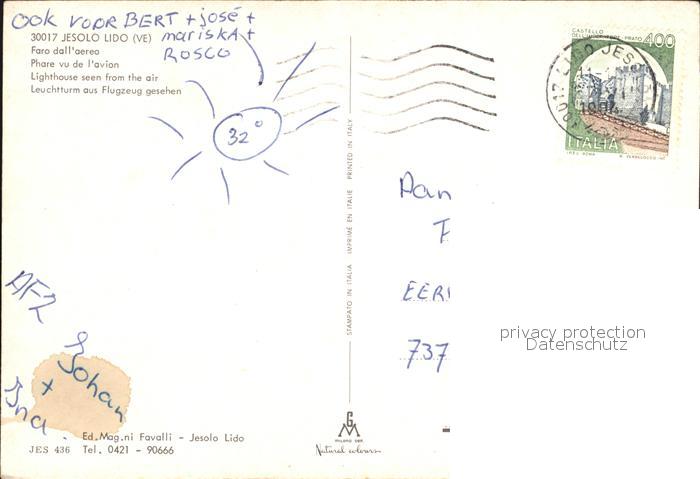 OOK VOOR BERT + José +
mariskA +
ROSCO
30017 JESOLO LIDO (VE)
Faro dall'aereo
Phare vu de l'avion
Lighthouse seen from the air
Leuchtturm aus Flugzeug gesehen
32°
AFZ
Johan
+
Ina.
Ed. Mag.ni Favalli - Jesolo Lido
JES 436 Tel. 0421 - 90666
STAMPATO IN ITALIA IMPRIMÉ EN ITALIE PRINTED IN ITALY
Natural colours
CASTELLO
PRATO 400
30017 LIDO JES
ITALIA
I.P.Z.S. ROMA
Aan
F
EER
737
privacy protection
Datenschutz